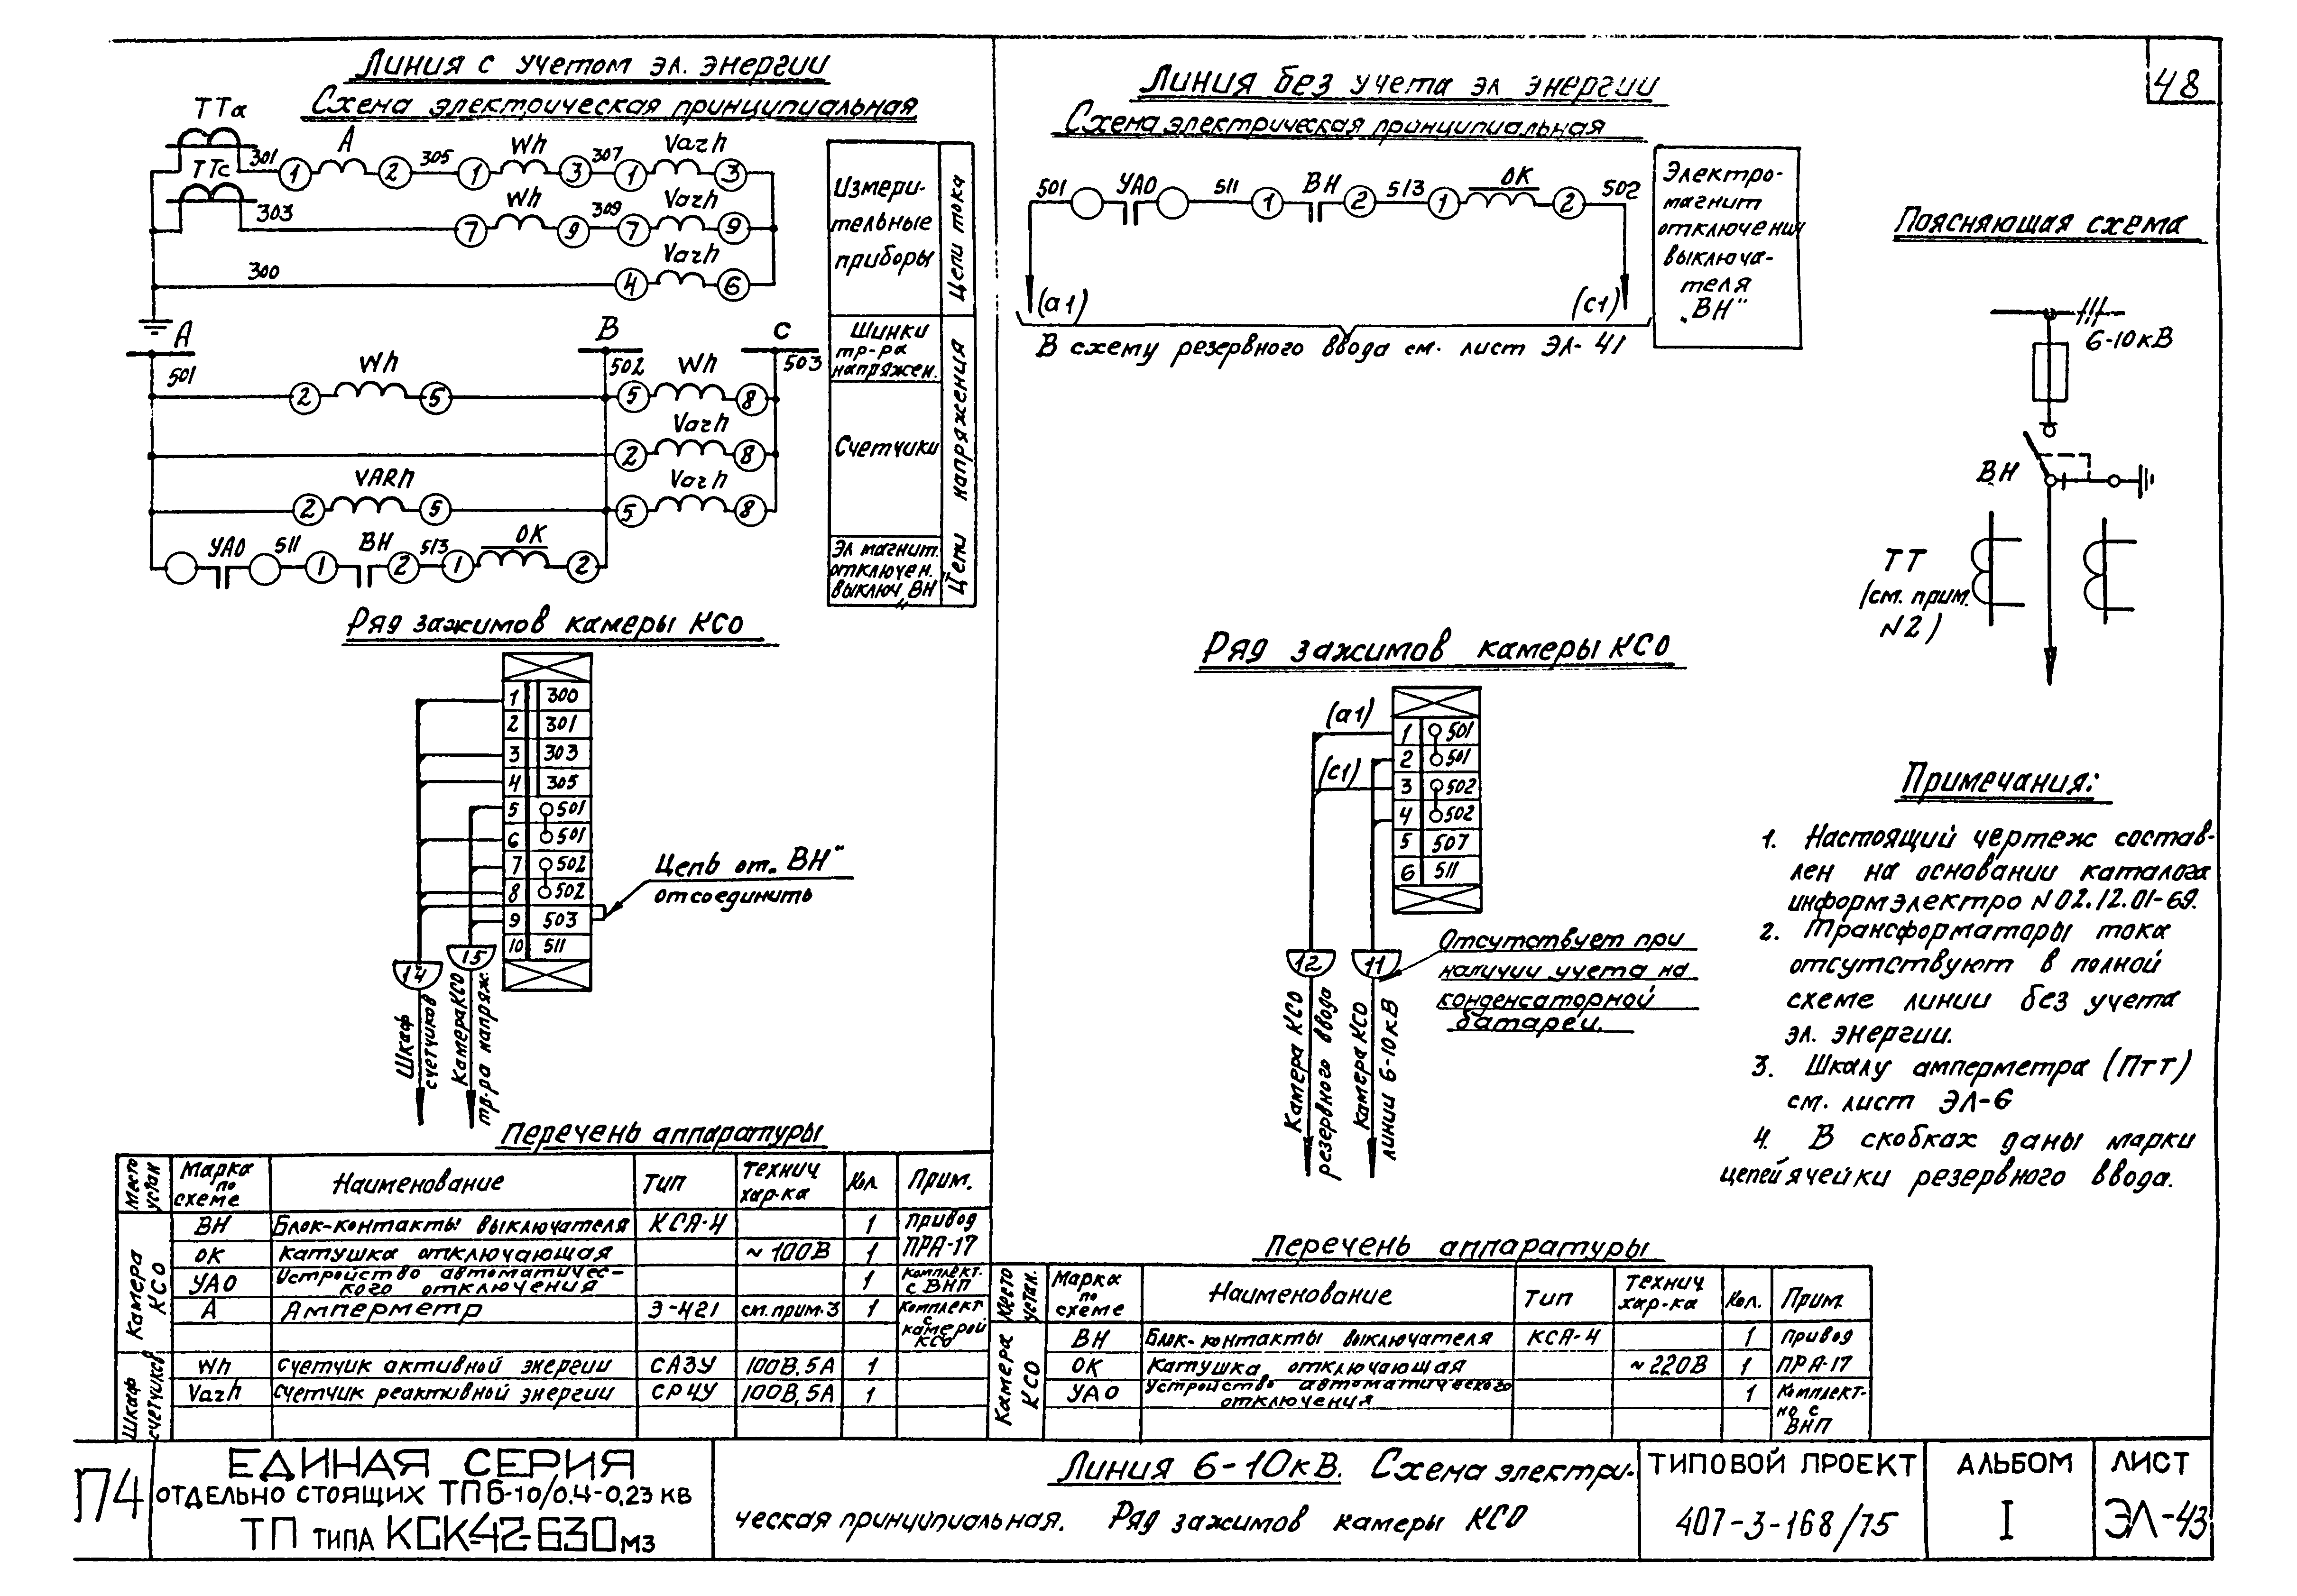 48
Линия с учетом эл. энергии
Схема электрическая принципиальная
ТТа
301 1 А 2 305 1 Wh 3 307 1 Varh 3
ТТс
303 7 Wh 9 309 7 Varh 9
300 4 Varh 6
Измери-
тельные
приборы
Цепи тока
А В С
501 502 503
Wh 2 5 Wh 5 8
Varh 2 8
VARh 2 5 Varh 5 8
УАО 511 1 ВН 2 513 1 ОК 2
Шинки
тр-ра
напряжен.
Счетчики
Эл магнит.
отключен.
выключ „ВН"
Цепи напряжения
Ряд зажимов камеры КСО
1 300
2 301
3 303
4 305
5 501
6 501
7 502
8 502
9 503
10 511
Цепь от „ВН"
отсоединить
14 15
Шкаф
счетчиков
Камера КСО
тр-ра напряж.
Перечень аппаратуры
Место устан Марка по схеме Наименование Тип технич хар-ка Кол. Прим.
Камера КСО
ВН Блок-контакты выключателя КСА-4 1 Привод
ОК Катушка отключающая ~100В 1 ПРА-17
УАО Устройство автоматичес-
кого отключения 1 Комплект. с ВНП
А Амперметр Э-421 см.прим.3 1 Комплект с камерой КСО
Шкаф счетчиков
Wh Счетчик активной энергии САЗУ 100В,5А 1
Varh Счетчик реактивной энергии СР4У 100В,5А 1
Линия без учета эл энергии
Схема электрическая принципиальная
501 УАО 511 1 ВН 2 513 1 ОК 2 502
(а1) (с1)
В схему резервного ввода см. лист ЭЛ-41
Электро-
магнит
отключения
выключа-
теля
„ВН"
Ряд зажимов камеры КСО
(а1)
(с1)
1 501
2 501
3 502
4 502
5 507
6 511
12 11
Отсутствует при
наличии учета на
конденсаторной
батареи.
Камера КСО
резервного ввода
Камера КСО
линии 6-10кВ
Поясняющая схема
6-10кВ
ВН
ТТ
(см. прим.
N2)
Примечания:
1. Настоящий чертеж состав-
лен на основании каталога
информэлектро N02.12.01-69.
2. Трансформаторы тока
отсутствуют в полной
схеме линии без учета
эл. энергии.
3. Шкалу амперметра (Птт)
см. лист ЭЛ-6
4. В скобках даны марки
цепей ячейки резервного ввода.
Перечень аппаратуры
Место устан. Марка по схеме Наименование Тип технич хар-ка Кол. Прим.
Камера КСО
ВН Блок-контакты выключателя КСА-4 1 Привод
ОК Катушка отключающая ~220В 1 ПРА-17
УАО Устройство автоматического
отключения 1 Комплект-
но с
ВНП
П4
ЕДИНАЯ СЕРИЯ
ОТДЕЛЬНО СТОЯЩИХ ТП 6-10/0.4-0,23 КВ
ТП ТИПА КСК-42-630М3
Линия 6-10кВ. Схема электри-
ческая принципиальная. Ряд зажимов камеры КСО
ТИПОВОЙ ПРОЕКТ
407-3-168/75
АЛЬБОМ
I
ЛИСТ
ЭЛ-43